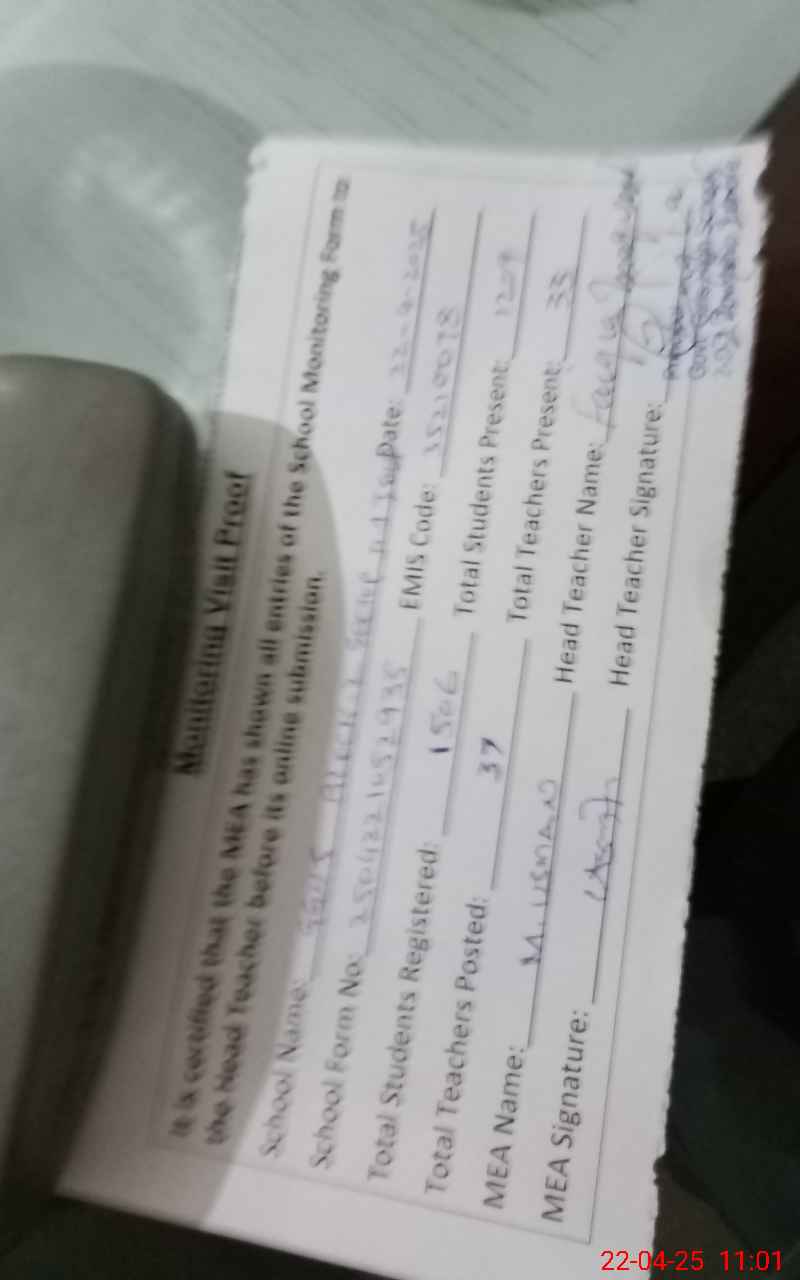 Monitoring Visit Proof
It is certified that the MEA has shown all entries of the School Monitoring Form to
the Head Teacher before its online submission.
School Name: Date: 22-4-2025
School Form No: 25042211052935 EMIS Code: 35210078
Total Students Registered: 1506 Total Students Present: 1209
Total Teachers Posted: 37 Total Teachers Present: 33
MEA Name: M. USMAN Head Teacher Name:
MEA Signature: Head Teacher Signature:
22-04-25 11:01